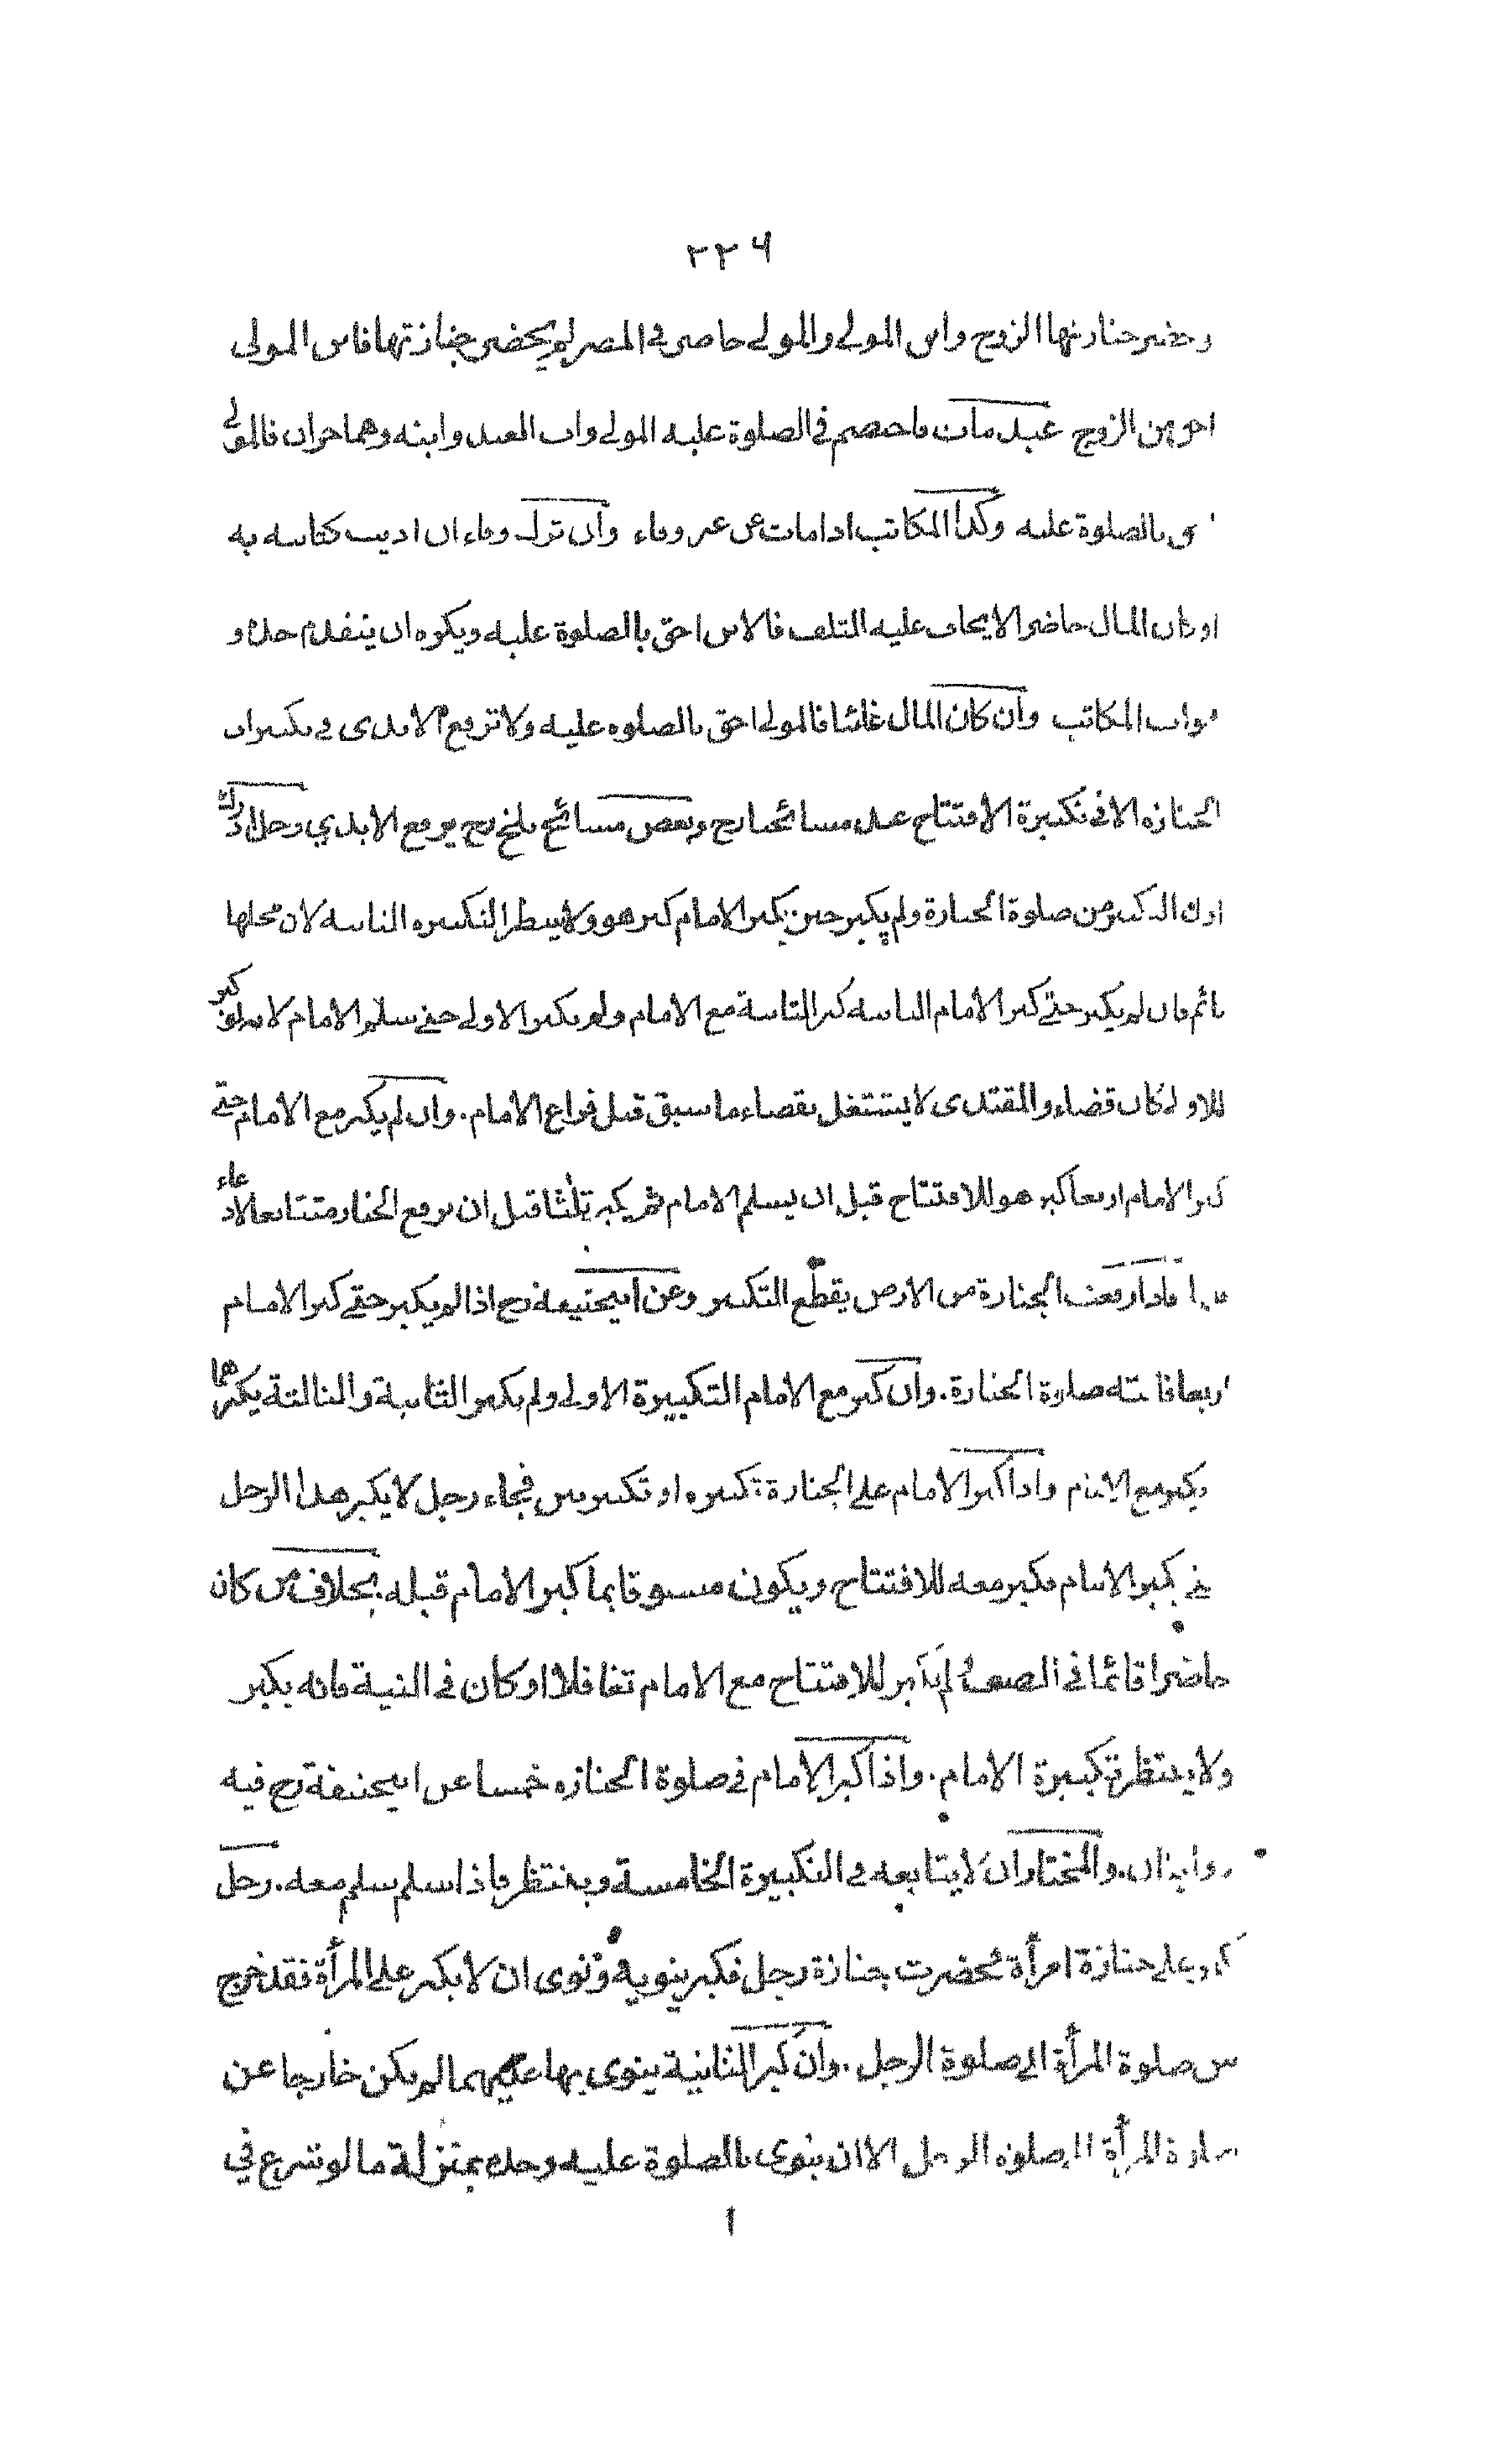 ٢٢٦
وحضر جنازتها الزوج وابن المولى والمولى حاضر في المصر لم يحضر جنازتها فابن المولى
احق من الزوج عبد مات فاختصم في الصلوة عليه المولى واب العبد وابنه وهما حران فالمولى
احق بالصلوة عليه وكذا المكاتب اذا مات عن غير وفاء وان ترك وفاء ان اديت كتابته به
او كان المال حاضرا لا يخاف عليه التلف فالابن احق بالصلوة عليه ويكره ان يتقدم جده و
هو اب المكاتب وان كان المال غائبا فالمولى احق بالصلوه عليه ولا ترفع الايدى في تكبيرات
الجنازه الا في تكبيرة الافتتاح عند مسائخنا رح وبعض مسائخ بلخ رح يرفع الايدي رجل ادرك
اول التكبير من صلوة الجنازة ولم يكبر حين يكبر الامام كبر هو ولا ينتظر التكبيره الثانيه لان محلها
قائم فان لم يكبر حتى كبر الامام الثانيه كبر الثانية مع الامام ولم يكبر الاولى حتى سلم الامام لانه لو كبر
للاولى كان قضاء والمقتدى لا يشتغل بقضاء ما سبق قبل فراغ الامام. وان لم يكبر مع الامام حتى
كبر الامام اربعا كبر هو للافتتاح قبل ان يسلم الامام ثم يكبر ثلثا قبل ان ترفع الجنازة متتابعا لا دعاء
فيها فاذا رفعت الجنازة من الارض يقطع التكبير وعن ابيحنيفة رح اذا لم يكبر حتى كبر الامام
اربعا فاتته صلوة الجنازة. وان كبر مع الامام التكبيرة الاولى ولم يكبر الثانية والثالثة يكبرهما
ويكبر مع الامام واذا كبر الامام على الجنازة تكبيره او تكبيرتين فجاء رجل لا يكبر هذا الرجل
حتى يكبر الامام فيكبر معه للافتتاح ويكون مسبوقا بما كبر الامام قبله. بخلاف من كان
حاضرا قائما في الصف لم يكبر للافتتاح مع الامام تغافلا او كان في النية فانه يكبر
ولا ينتظر تكبيرة الامام. واذا كبر الامام في صلوة الجنازه خمسا عن ابيحنيفة رح فيه
روايتان. والمختار ان لا يتابعه في التكبيرة الخامسة وينتظر فاذا سلم سلم معه. رجل
كبر على جنازة امرأة فحضرت جنازة رجل فكبر ينويه ونوى ان لا يكبر على المرأة فقد خرج
من صلوة المرأة الى صلوة الرجل. وان كبر الثانية ينوى بها عليهما لم يكن خارجا عن
صلوة المرأة الى صلوه الرجل الا ان ينوى بالصلوة عليه وحده بمنزلة ما لو شرع في
١